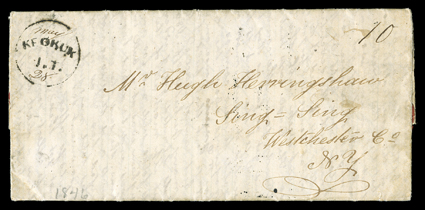 May
KEOKUK
I.T.
28
10
Mr Hugh Herringshaw
Sing = Sing
Westchester Co
NY
1846